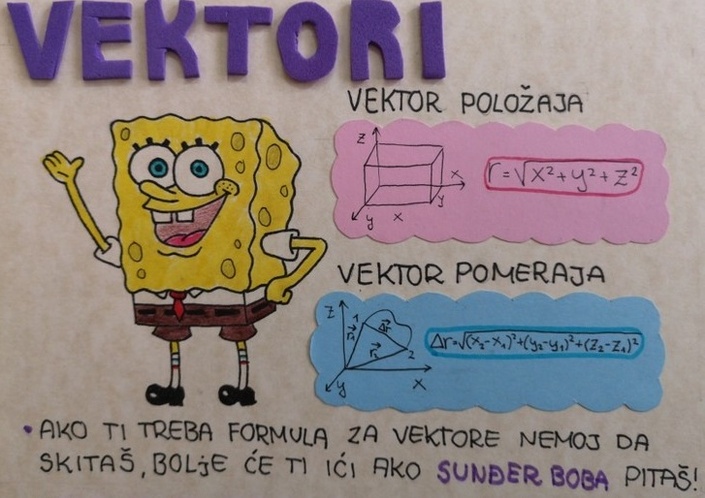 VEKTORI
VEKTOR POLOŽAJA
z
x
y
x
y
r = √x²+y²+z²
VEKTOR POMERAJA
z
1
r⃗₁
Δr⃗
r⃗₂
2
y
x
Δr=√(x₂-x₁)²+(y₂-y₁)²+(z₂-z₁)²
• AKO TI TREBA FORMULA ZA VEKTORE NEMOJ DA
SKITAŠ, BOLJE ĆE TI IĆI AKO SUNĐER BOBA PITAŠ!